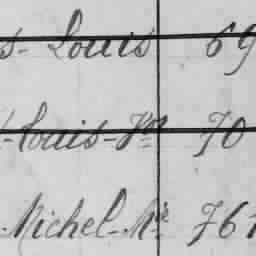 s- Louis 69
- Louis-Jph 70
Michel-Mie 761